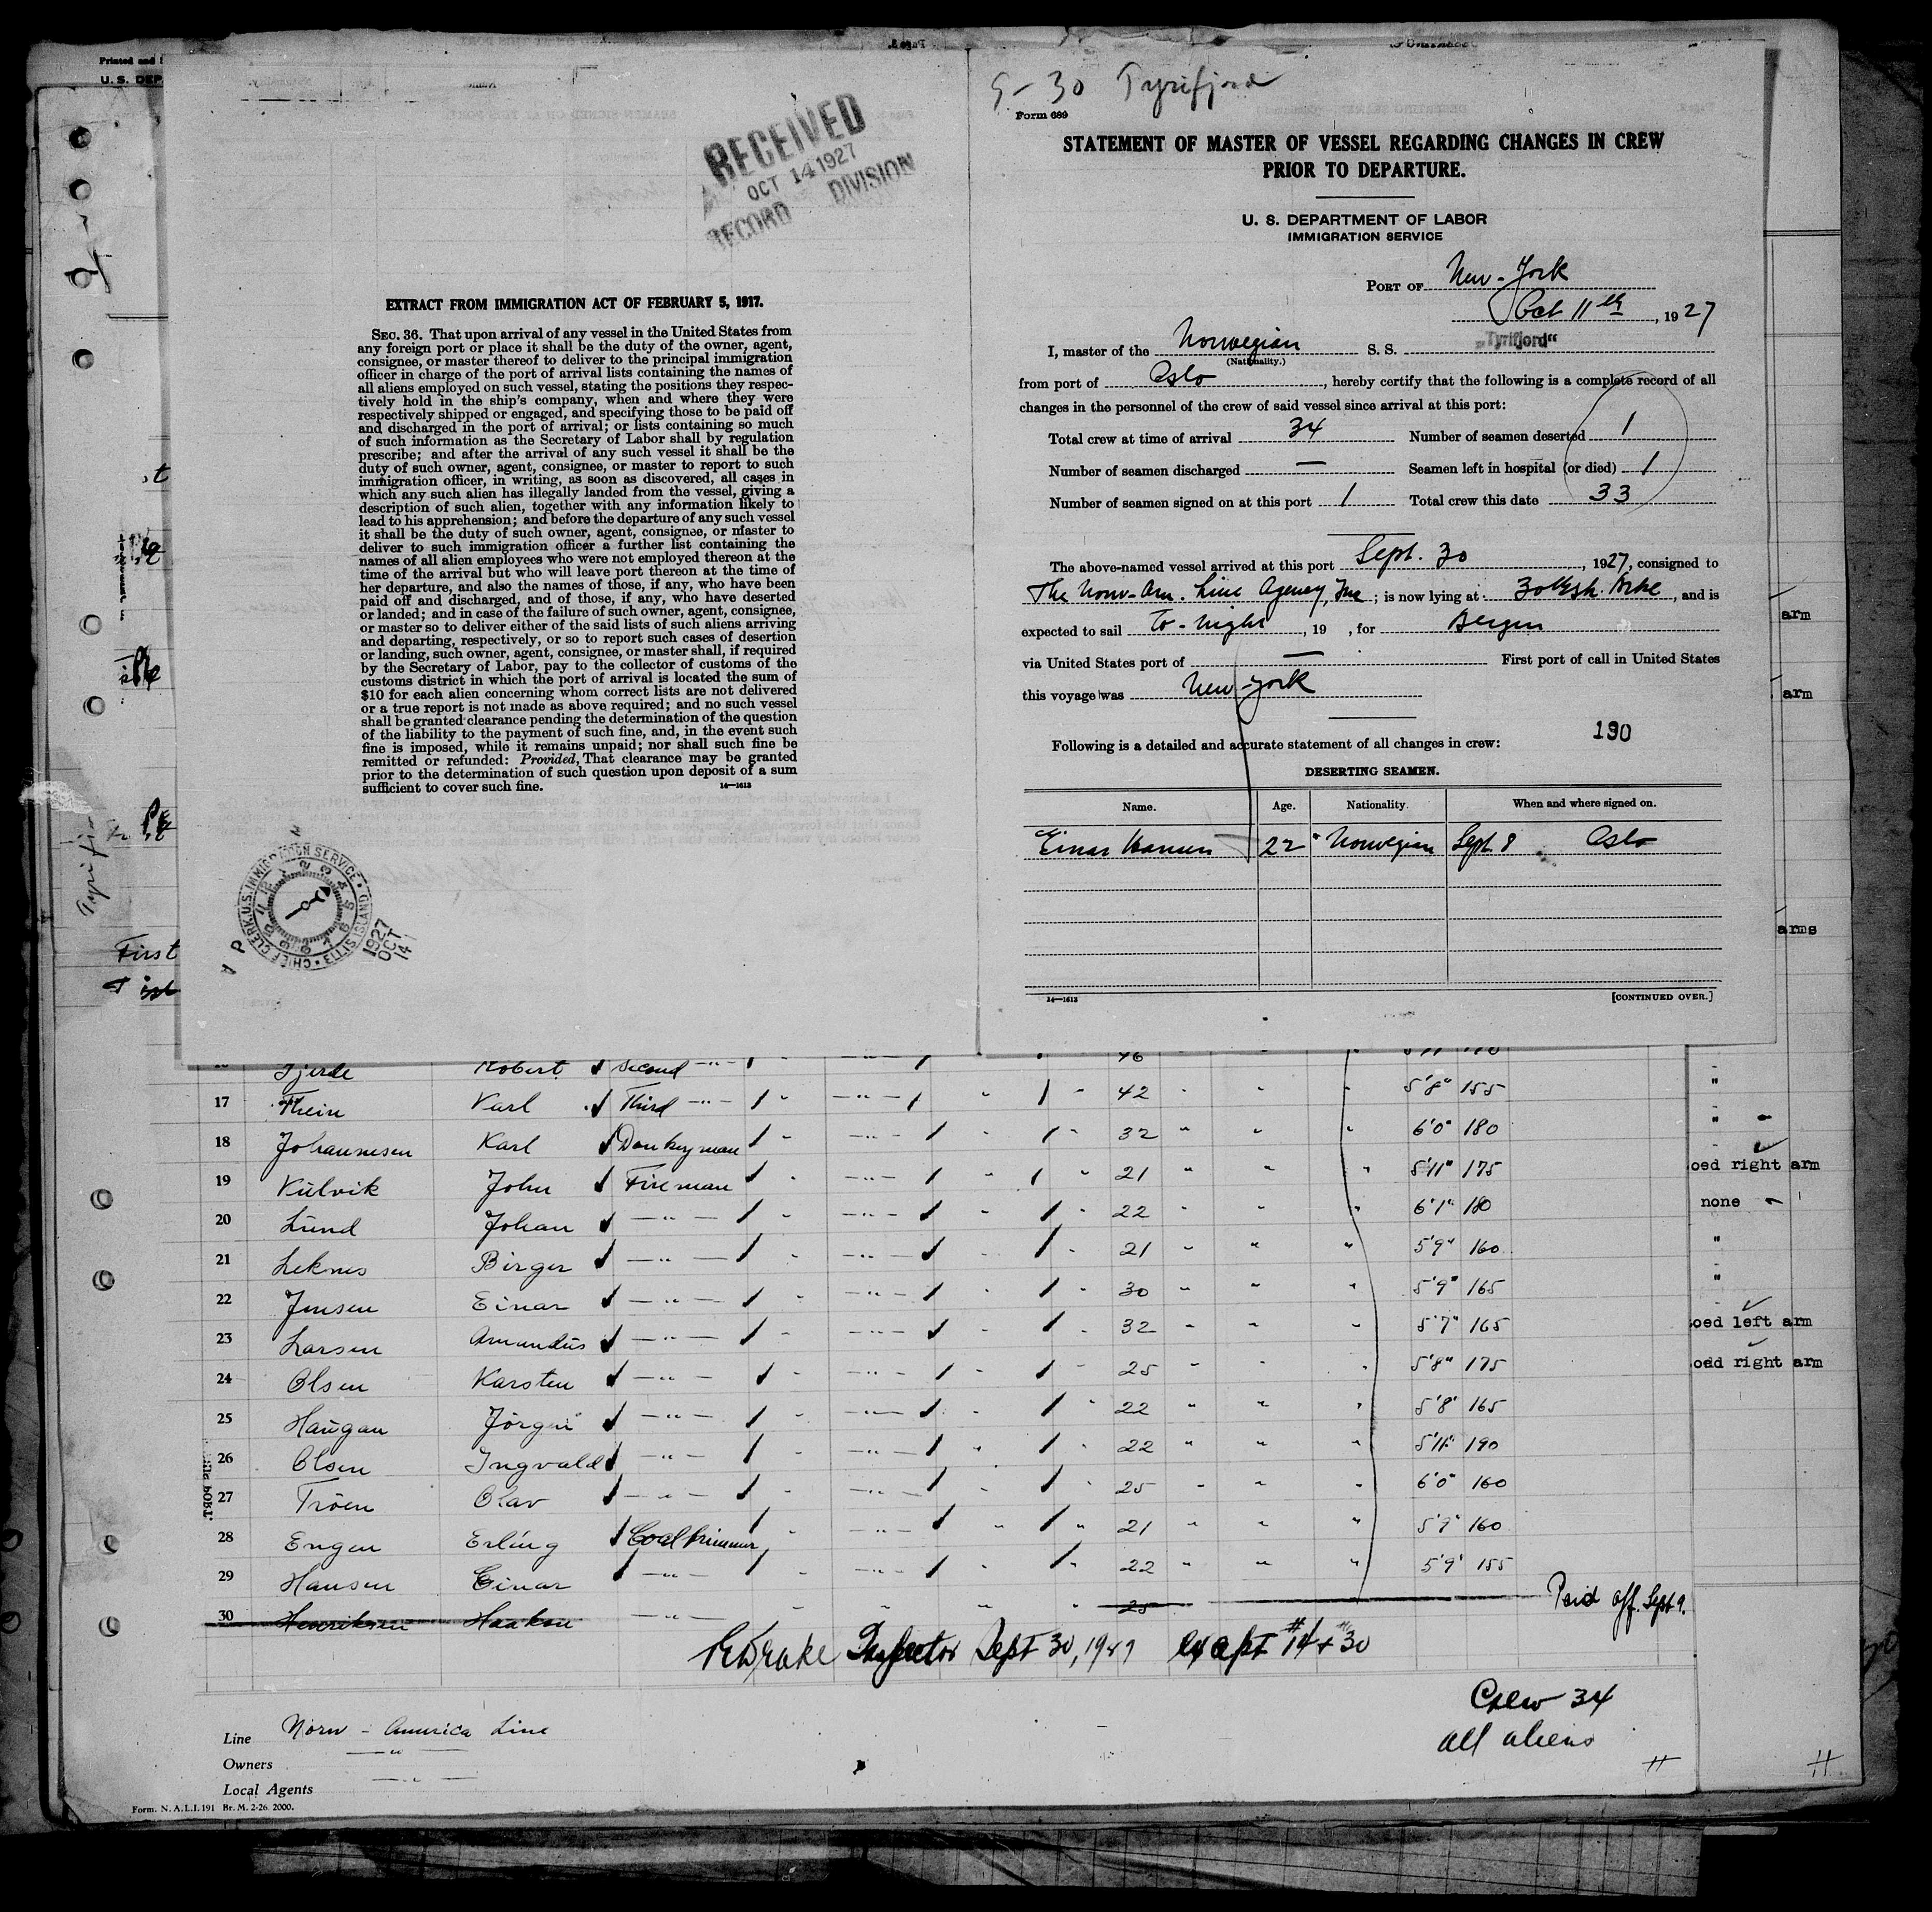 Printed and
U. S. DEP
RECEIVED
OCT 14 1927
RECORD DIVISION
EXTRACT FROM IMMIGRATION ACT OF FEBRUARY 5, 1917.
SEC. 36. That upon arrival of any vessel in the United States from
any foreign port or place it shall be the duty of the owner, agent,
consignee, or master thereof to deliver to the principal immigration
officer in charge of the port of arrival lists containing the names of
all aliens employed on such vessel, stating the positions they respec-
tively hold in the ship's company, when and where they were
respectively shipped or engaged, and specifying those to be paid off
and discharged in the port of arrival; or lists containing so much
of such information as the Secretary of Labor shall by regulation
prescribe; and after the arrival of any such vessel it shall be the
duty of such owner, agent, consignee, or master to report to such
immigration officer, in writing, as soon as discovered, all cases in
which any such alien has illegally landed from the vessel, giving a
description of such alien, together with any information likely to
lead to his apprehension; and before the departure of any such vessel
it shall be the duty of such owner, agent, consignee, or master to
deliver to such immigration officer a further list containing the
names of all alien employees who were not employed thereon at the
time of the arrival but who will leave port thereon at the time of
her departure, and also the names of those, if any, who have been
paid off and discharged, and of those, if any, who have deserted
or landed; and in case of the failure of such owner, agent, consignee,
or master so to deliver either of the said lists of such aliens arriving
and departing, respectively, or so to report such cases of desertion
or landing, such owner, agent, consignee, or master shall, if required
by the Secretary of Labor, pay to the collector of customs of the
customs district in which the port of arrival is located the sum of
$10 for each alien concerning whom correct lists are not delivered
or a true report is not made as above required; and no such vessel
shall be granted clearance pending the determination of the question
of the liability to the payment of such fine, and, in the event such
fine is imposed, while it remains unpaid; nor shall such fine be
remitted or refunded: Provided, That clearance may be granted
prior to the determination of such question upon deposit of a sum
sufficient to cover such fine. 14—1613
CHIEF CLERK U.S. IMMIGRATION SERVICE • ELLIS ISLAND
1927 OCT 14
First
9-30 Tyrifjord
Form 689
STATEMENT OF MASTER OF VESSEL REGARDING CHANGES IN CREW
PRIOR TO DEPARTURE.
U. S. DEPARTMENT OF LABOR
IMMIGRATION SERVICE
PORT OF New-York
Oct 11th, 1927
I, master of the Norwegian S. S. "Tyrifjord"
(Nationality.)
from port of Oslo, hereby certify that the following is a complete record of all
changes in the personnel of the crew of said vessel since arrival at this port:
Total crew at time of arrival 34 Number of seamen deserted 1
Number of seamen discharged — Seamen left in hospital (or died) 1
Number of seamen signed on at this port 1 Total crew this date 33
The above-named vessel arrived at this port Sept. 30, 1927, consigned to
The Norw-Am. Line Agency, Inc; is now lying at 30th St. , and is
expected to sail To-night, 19 , for Bergen
via United States port of — First port of call in United States
this voyage was New-York
190
Following is a detailed and accurate statement of all changes in crew:
DESERTING SEAMEN.
Name. Age. Nationality. When and where signed on.
Einar Hansen 22 Norwegian Sept 8 Oslo
14—1613 [CONTINUED OVER.]
arm
arm
arms
Fjerde Robert Second 46
17 Thein Karl Third 42 5'8" 155 "
18 Johannesen Karl Donkeyman 32 6'0" 180 "
19 Kulvik John Fireman 21 5'11" 175 oed right arm
20 Lund Johan 22 6'1" 180 none
21 Leknes Birger 21 5'9" 160 "
22 Jensen Einar 30 5'9" 165 "
23 Larsen Amandus 32 5'7" 165 oed left arm
24 Olsen Karsten 25 5'8" 175 oed right arm
25 Haugan Jörgen 22 5'8" 165
26 Olsen Ingvald 22 5'11" 190
27 Tröen Olav 25 6'0" 160
28 Engen Erling Coaltrimmer 21 5'7" 160
29 Hansen Einar 22 5'9" 155
30 Henriksen Haakon 25 Paid off Sept 9.
Drake Inspector Sept 30, 1927 except #14 + 30
Crew 34
all aliens
Line Norw - America Line
Owners — " —
Local Agents — " —
Form. N. A. L. I. 191 Br. M. 2-26. 2000.